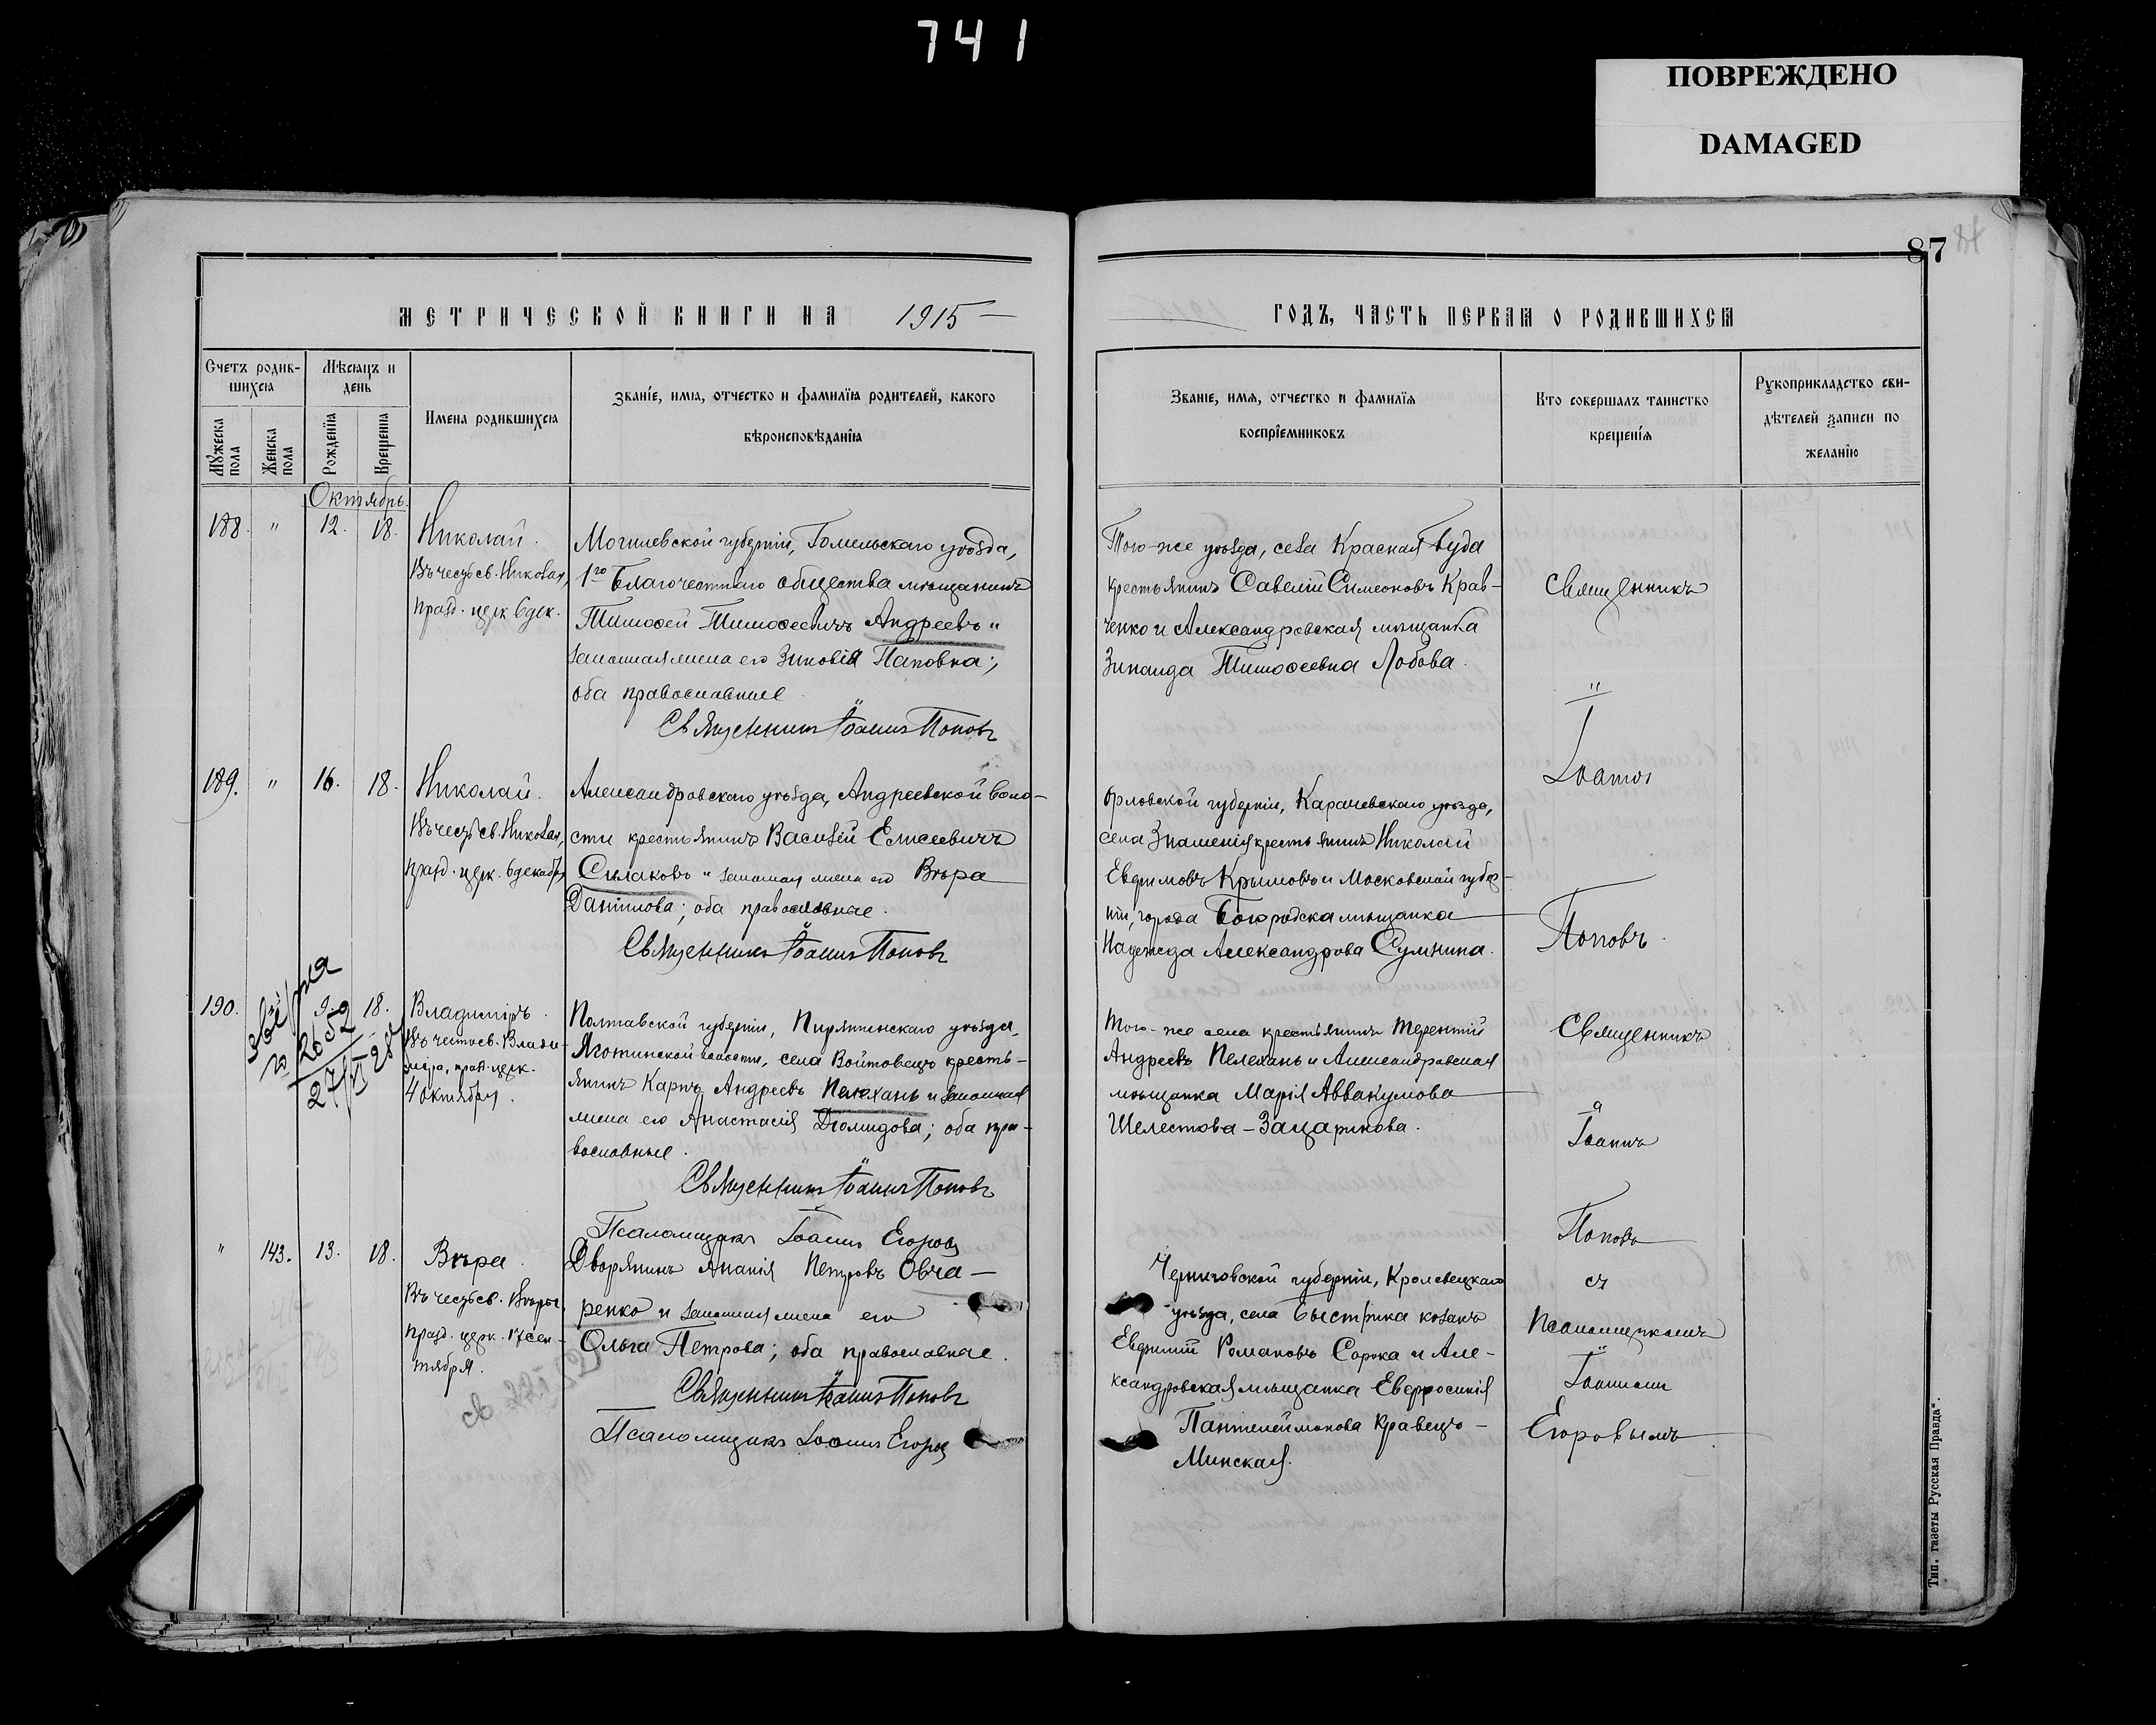 741
ПОВРЕЖДЕНО
DAMAGED
87
МЕТРИЧЕСКОЙ КНИГИ НА 1915
Счетъ родив-
шихся
Мужеска пола
Женска пола
Мѣсяцъ и
день
Рожденія
Крещенія
Имена родившихся
Званіе, имя, отчество и фамилія родителей, какого
вѣроисповѣданія
Октябрь.
188. " 12. 18.
Николай.
Въ честь св. Николая,
празд. церк. 6 дек.
Могилевской губерніи, Гомельскаго уѣзда,
1го Благочестиваго общества мѣщанинъ
Тимоѳей Тимоѳеевичъ Андреевъ и
законная жена его Зиновія Паповна;
оба православные
Священникъ Іоаннъ Поповъ
189. " 16. 18.
Николай.
Въ честь св. Николая,
празд. церк. 6 декабря
Александровскаго уѣзда, Андреевской воло-
сти крестьянинъ Василій Елисеевичъ
Силаковъ и законная жена его Вѣра
Данилова; оба православные.
Священникъ Іоаннъ Поповъ
190. 9. 18.
2652
27/VI 28
Владиміръ.
Въ честь св. Влади-
міра, празд. церк.
4 октября.
Полтавской губерніи, Пирятинскаго уѣзда,
Яготинской волости, села Войтовецъ кресть-
янинъ Карпъ Андреевъ Пелехань и законная
жена его Анастасія Діомидова; оба пра-
вославные.
Священникъ Іоаннъ Поповъ
Псаломщикъ Іоаннъ Егоровъ
" 143. 13. 18.
Вѣра.
Въ честь св. Вѣры,
празд. церк. 17 сен-
тября.
Дворянинъ Ананія Петровъ Овча-
ренко и законная жена его
Ольга Петрова; оба православные.
Священникъ Іоаннъ Поповъ
Псаломщикъ Іоаннъ Егоровъ
ГОДЪ, ЧАСТЬ ПЕРВАЯ О РОДИВШИХСЯ
Званіе, имя, отчество и фамилія
воспріемниковъ
Кто совершалъ таинство
крещенія
Рукоприкладство сви-
дѣтелей записи по
желанію
Того-же уѣзда, села Красная Буда
крестьянинъ Савелій Симеоновъ Крав-
ченко и Александровская мѣщанка
Зинаида Тимоѳеевна Лобова.
Священникъ
Іоаннъ
Орловской губерніи, Карачевскаго уѣзда,
села Знаменія крестьянинъ Николай
Евфимовъ Крымовъ и Московской губер-
ніи, города Богородска мѣщанка
Надежда Александрова Сумнина.
Поповъ.
Того-же села крестьянинъ Терентій
Андреевъ Пелехань и Александровская
мѣщанка Марія Аввакумова
Шелестова-Зацарикова.
Священникъ
Іоаннъ
Поповъ
Черниговской губерніи, Кролевецкаго
уѣзда, села Быстрика козакъ
Евфимій Романовъ Сорока и Але-
ксандровская мѣщанка Евфросинія
Пантелеймонова Кравецъ-
Минская.
съ
Псаломщикомъ
Іоанномъ
Егоровымъ
Тип. газеты Русская Правда".